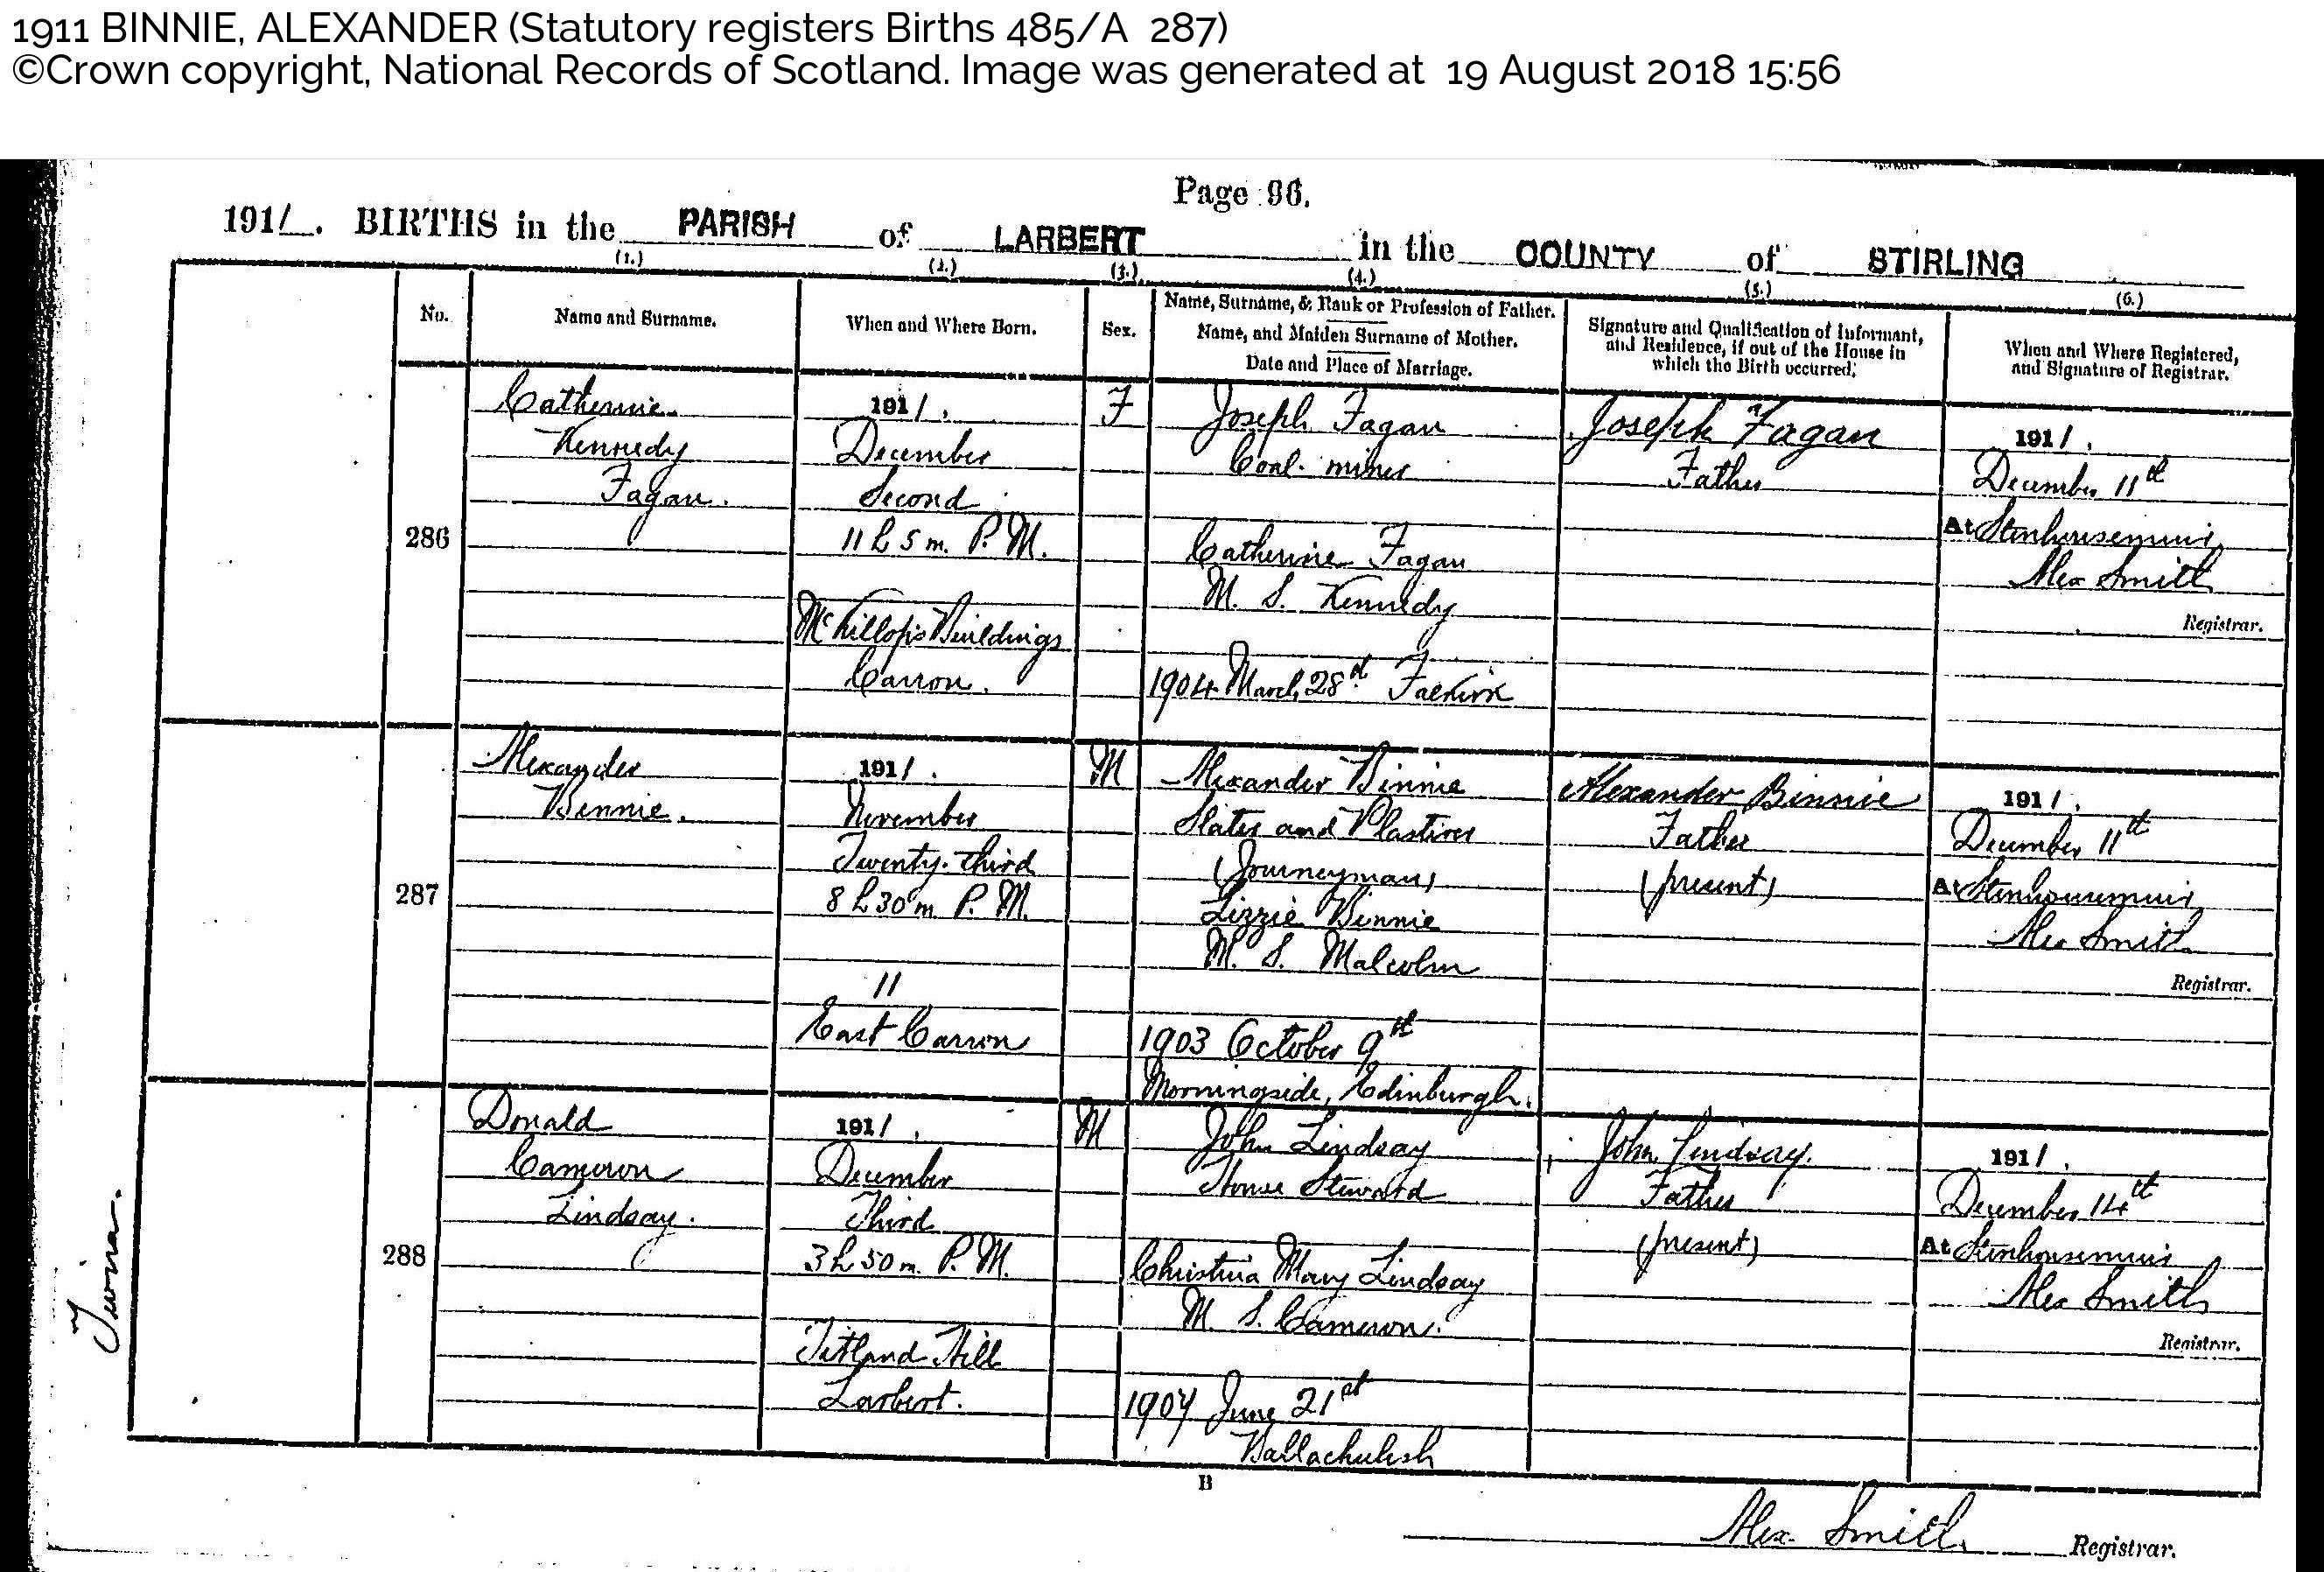 1911 BINNIE, ALEXANDER (Statutory registers Births 485/A 287)
©Crown copyright, National Records of Scotland. Image was generated at 19 August 2018 15:56
Page 96.
1911. BIRTHS in the PARISH of LARBERT in the COUNTY of STIRLING
(1.) (2.) (3.) (4.) (5.) (6.)
No.
Name and Surname.
When and Where Born.
Sex.
Name, Surname, & Rank or Profession of Father.
Name, and Maiden Surname of Mother.
Date and Place of Marriage.
Signature and Qualification of Informant,
and Residence, if out of the House in
which the Birth occurred.
When and Where Registered,
and Signature of Registrar.
286
Catherine
Kennedy
Fagan.
1911.
December
Second
11 h 5 m. P. M.
McKillop's Buildings
Carron.
F
Joseph Fagan
Coal miner
Catherine Fagan
M. S. Kennedy
1904 March 28th Falkirk
Joseph Fagan
Father
1911.
December 11th
At Stenhousemuir
Alex Smith
Registrar.
287
Alexander
Binnie.
1911.
November
Twenty-third
8 h 30 m P. M.
11
East Carron
M
Alexander Binnie
Slater and Plasterer
(Journeyman)
Lizzie Binnie
M. S. Malcolm
1903 October 9th
Morningside, Edinburgh.
Alexander Binnie
Father
(present)
1911.
December 11th
At Stenhousemuir
Alex Smith
Registrar.
Twins.
288
Donald
Cameron
Lindsay.
1911.
December
Third
3 h 50 m. P. M.
Titland Hill
Larbert.
M
John Lindsay
House Steward
Christina Mary Lindsay
M. S. Cameron.
1907 June 21st
Ballachulish
John Lindsay.
Father
(present)
1911.
December 14th
At Stenhousemuir
Alex Smith
Registrar.
B
Alex. Smith. Registrar.